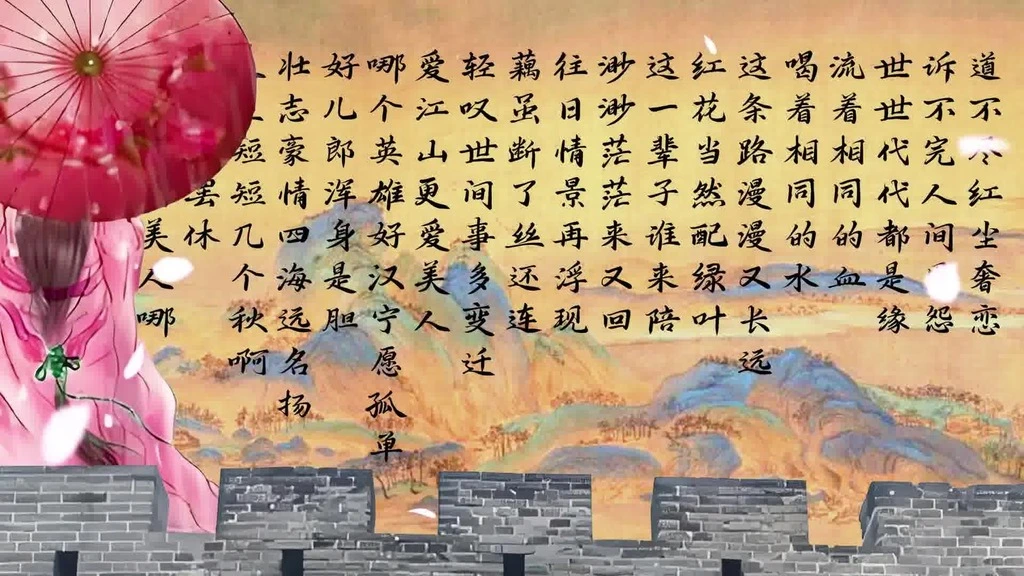 道不尽红尘奢恋
诉不完人间怨
世世代代都是缘
流着相同的血
喝着相同的水
这条路漫漫又长远
红花当然配绿叶
这一辈子谁来陪
渺渺茫茫来又回
往日情景再浮现
藕虽断了丝还连
轻叹世间事多变迁
爱江山更爱美人
哪个英雄好汉宁愿孤单
好儿郎浑身是胆
壮志豪情四海远名扬
短短几个秋啊
罢休
美人哪